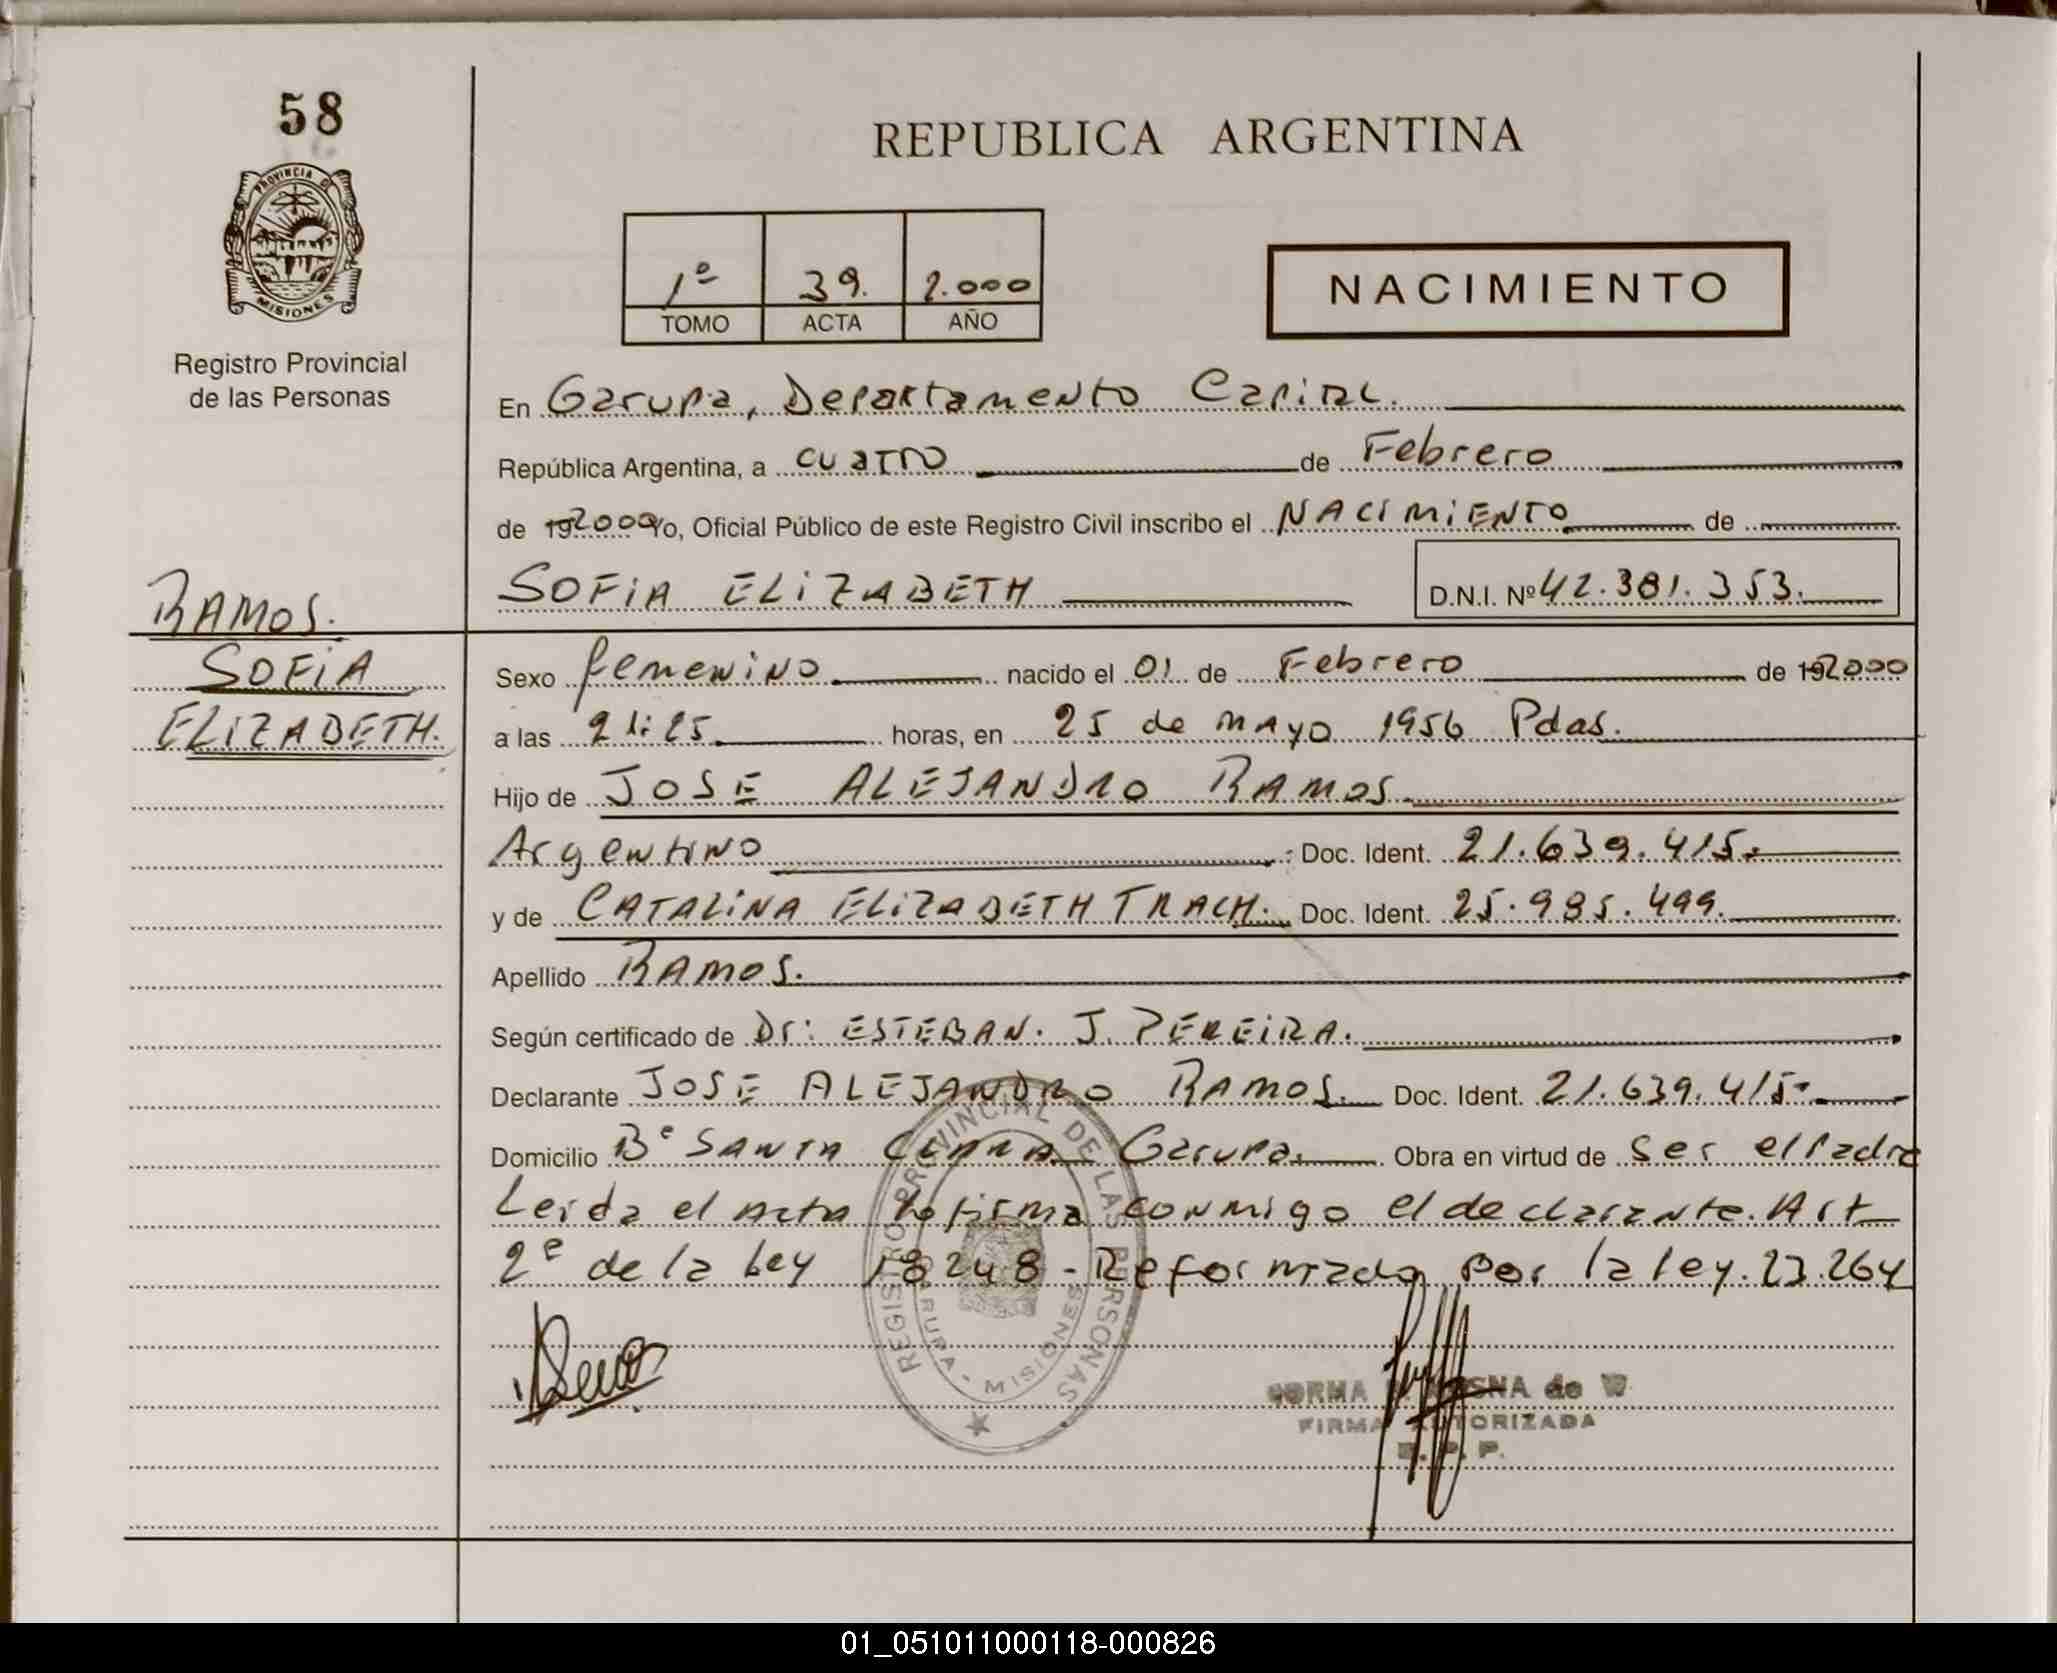 58
PROVINCIA DE
MISIONES
Registro Provincial
de las Personas
REPUBLICA ARGENTINA
1º 39. 2.000
TOMO ACTA AÑO
NACIMIENTO
En Garupa, Departamento Capital.
República Argentina, a cuatro de Febrero
de 192000 Yo, Oficial Público de este Registro Civil inscribo el NACIMIENTO de
RAMOS.
SOFIA ELIZABETH D.N.I. Nº 42.381.353.
SOFIA
ELIZABETH.
Sexo femenino nacido el 01 de Febrero de 192000
a las 21:25 horas, en 25 de mayo 1956 Pdas.
Hijo de JOSE ALEJANDRO RAMOS
Argentino Doc. Ident. 21.639.415.
y de CATALINA ELIZABETH TRACH. Doc. Ident. 25.985.499.
Apellido RAMOS.
Según certificado de Dr: ESTEBAN. J. PEREIRA.
Declarante JOSE ALEJANDRO RAMOS. Doc. Ident. 21.639.415.
Domicilio Bº SANTA CLARA Garupa. Obra en virtud de ser el Padre
Leida el acta la firma conmigo el declarante. Art
2º de la Ley 18248 - Reformada por la ley. 23.264
REGISTRO PROVINCIAL DE LAS PERSONAS
GARUPA - MISIONES
de W
FIRMA AUTORIZADA
P. P.
01_051011000118-000826